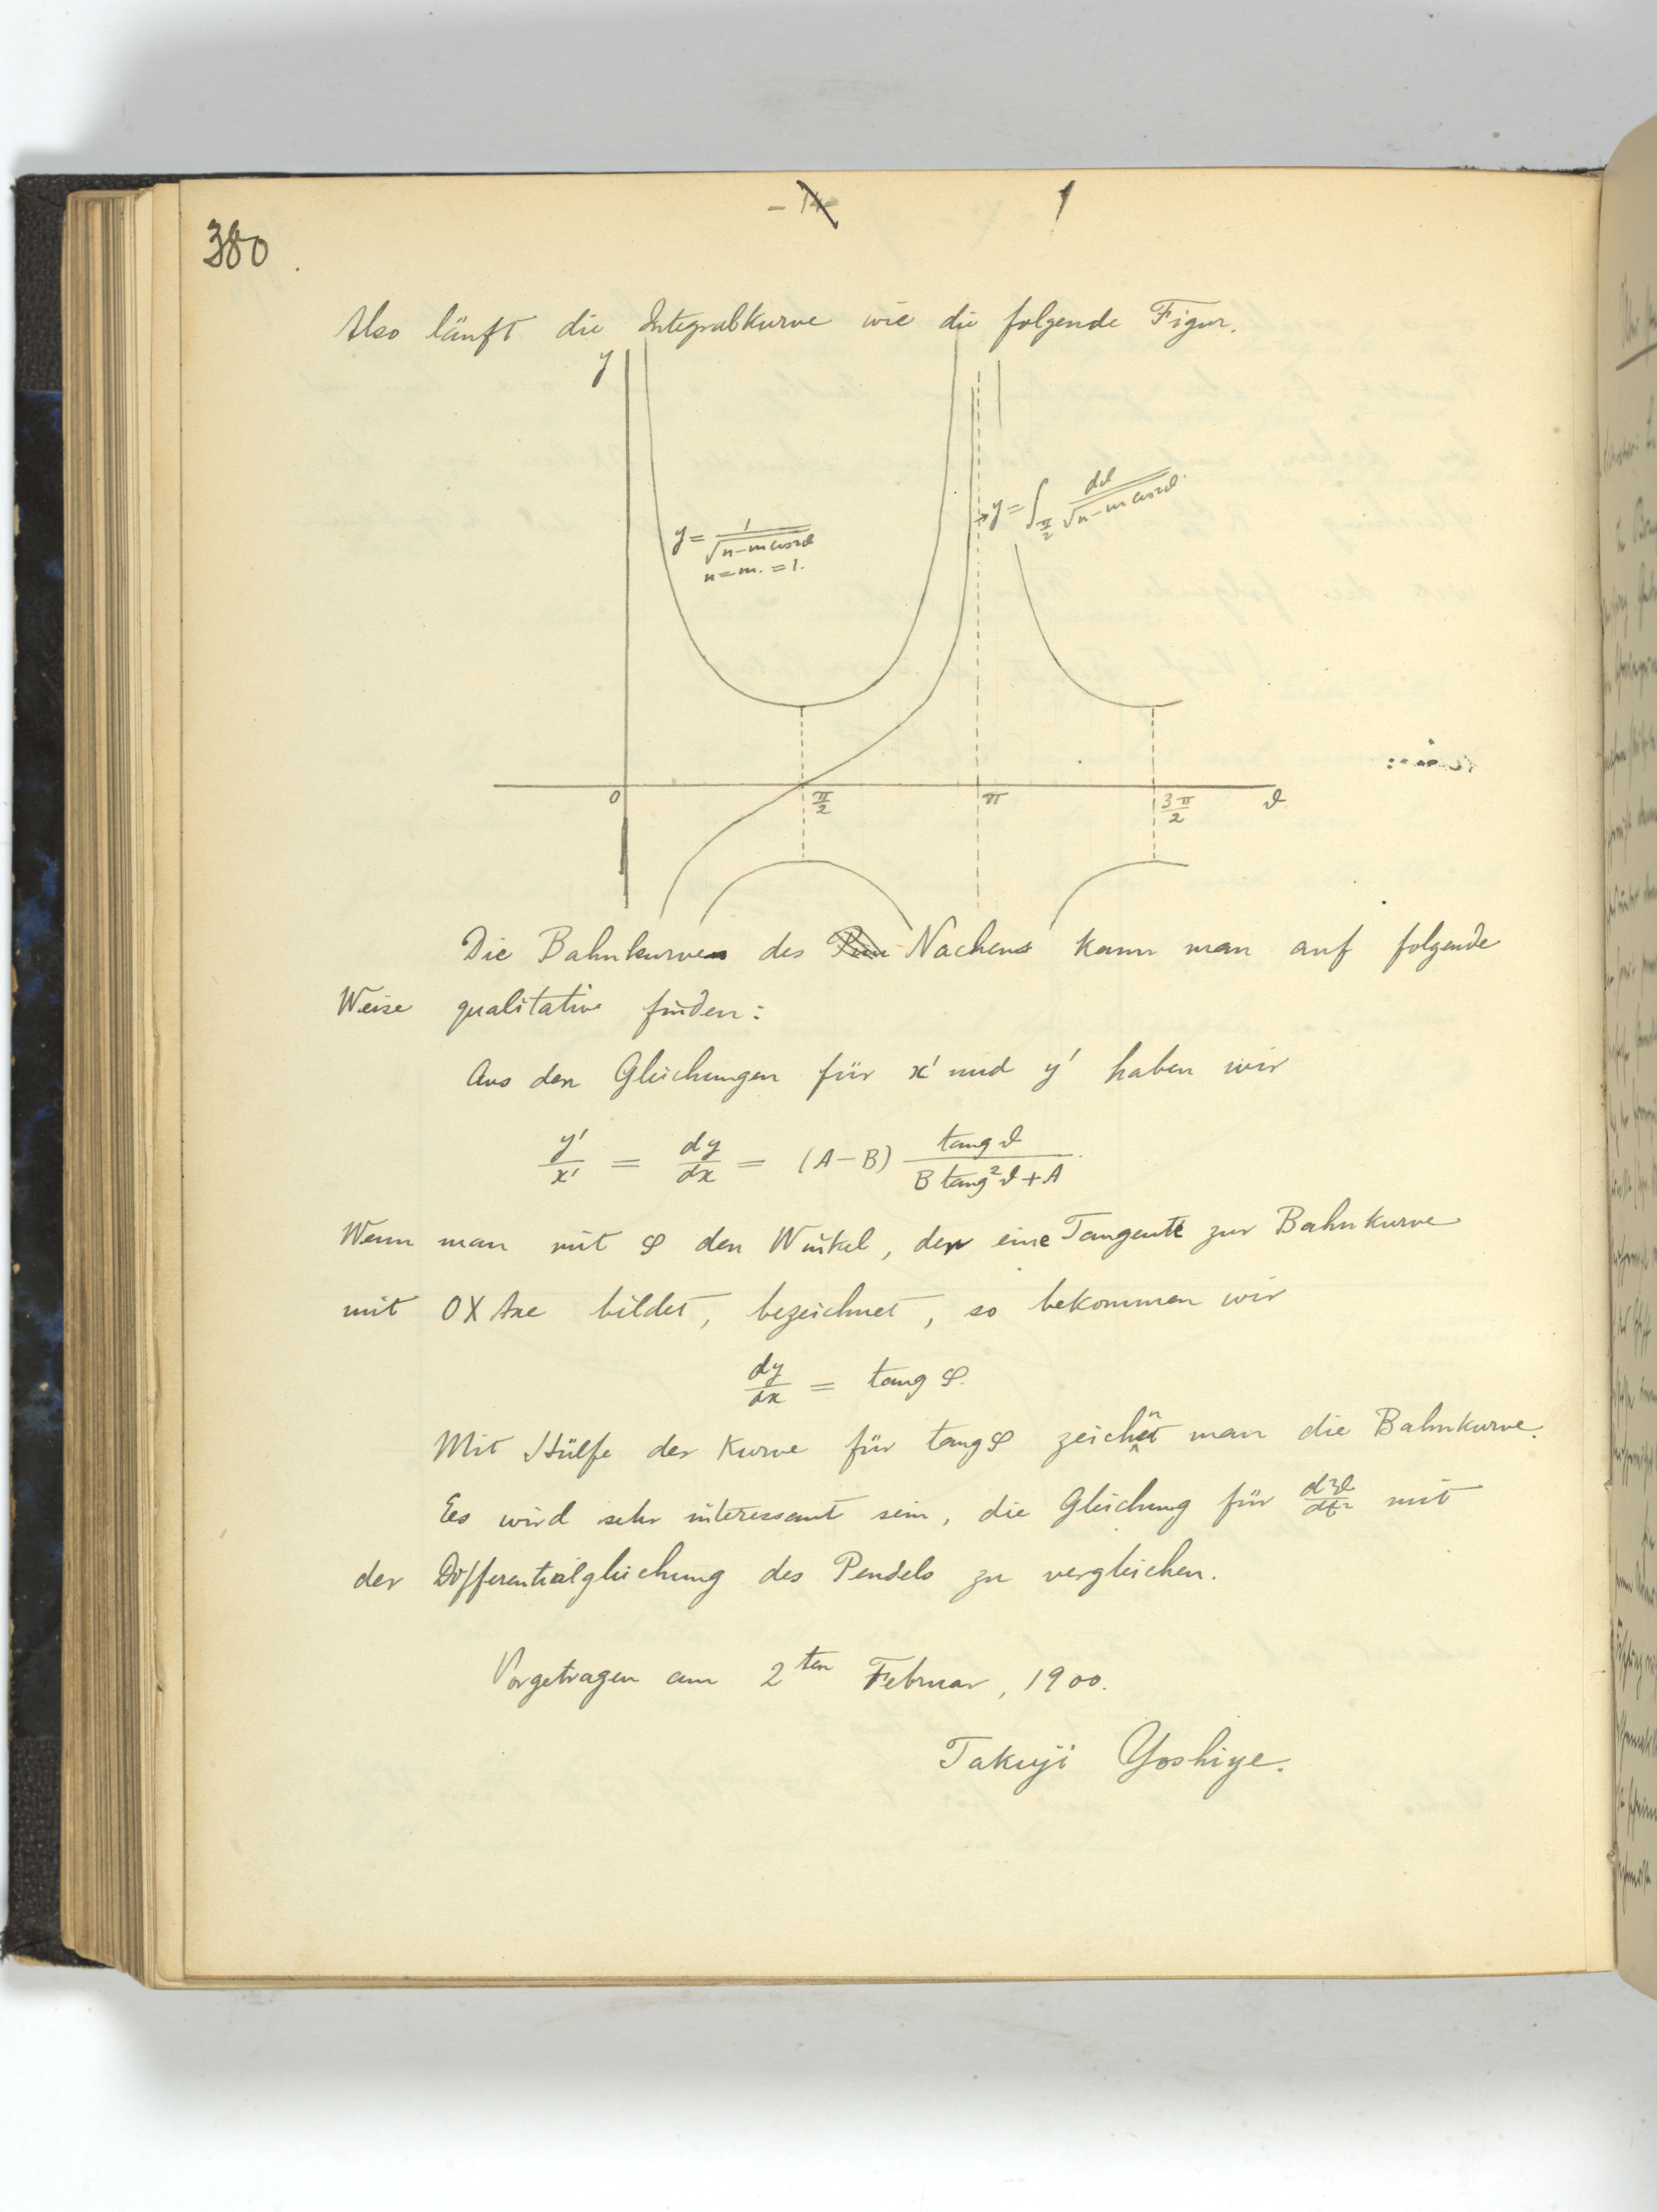 380.
1
Also läuft die Integralkurve wie die folgende Figur.
y
y = 1/√(n-m cos2ϑ)
n = m. = 1.
y = ∫_{π/2} dϑ/√(n-m cos2ϑ).
0 π/2 π 3π/2 ϑ
Die Bahnkurve des Nachens kann man auf folgende
Weise qualitative finden:
Aus den Gleichungen für x' und y' haben wir
y'/x' = dy/dx = (A-B) tang ϑ/(B tang²ϑ + A).
Wenn man mit φ den Winkel, den eine Tangente zur Bahnkurve
mit OX Axe bildet, bezeichnet, so bekommen wir
dy/dx = tang φ.
Mit Hülfe der Kurve für tang φ zeichnet man die Bahnkurve.
Es wird sehr interessant sein, die Gleichung für d²ϑ/dt² mit
der Differentialgleichung des Pendels zu vergleichen.
Vorgetragen am 2ten Februar, 1900.
Takuji Yoshiye.